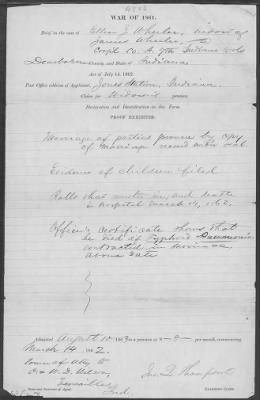 WAR OF 1861.
Brief in the case of Ellen J. Wheeler, widow of
James Wheeler
Corpl Co. A. 7th Indiana Vols
Dearborn County, and State of Indiana
Act of July 14, 1862.
Post Office address of Applicant, Indiana
Claim for Widow's pension.
Declaration and Identification in due Form.
PROOF EXHIBITED.
Marriage of parties proven by copy
of marriage record under seal.
Evidence of children filed
Rolls show muster in, and death
in hospital March 14, 1862.
Officer's certificate shows that
he died of Typhoid Pneumonia
contracted in service
above date
Admitted August 10 1863 at 8 per month, commencing
March 14 1862.
Power of Atty to
Ind.